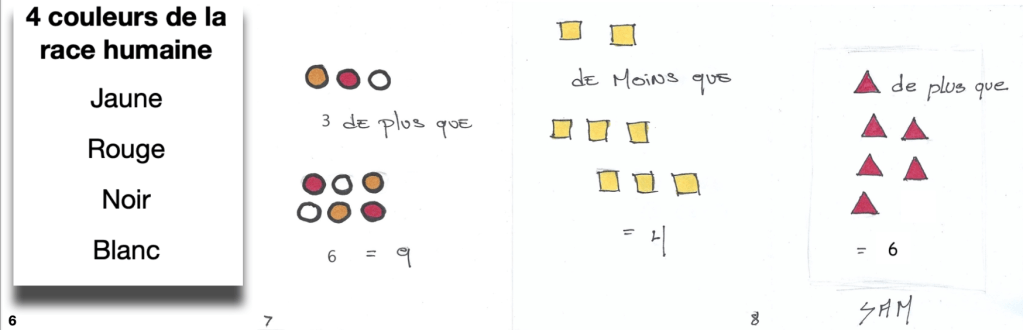 4 couleurs de la
race humaine
Jaune
Rouge
Noir
Blanc
6
3 de plus que
6 = 9
7
de moins que
= 4
8
de plus que
= 6
SAM